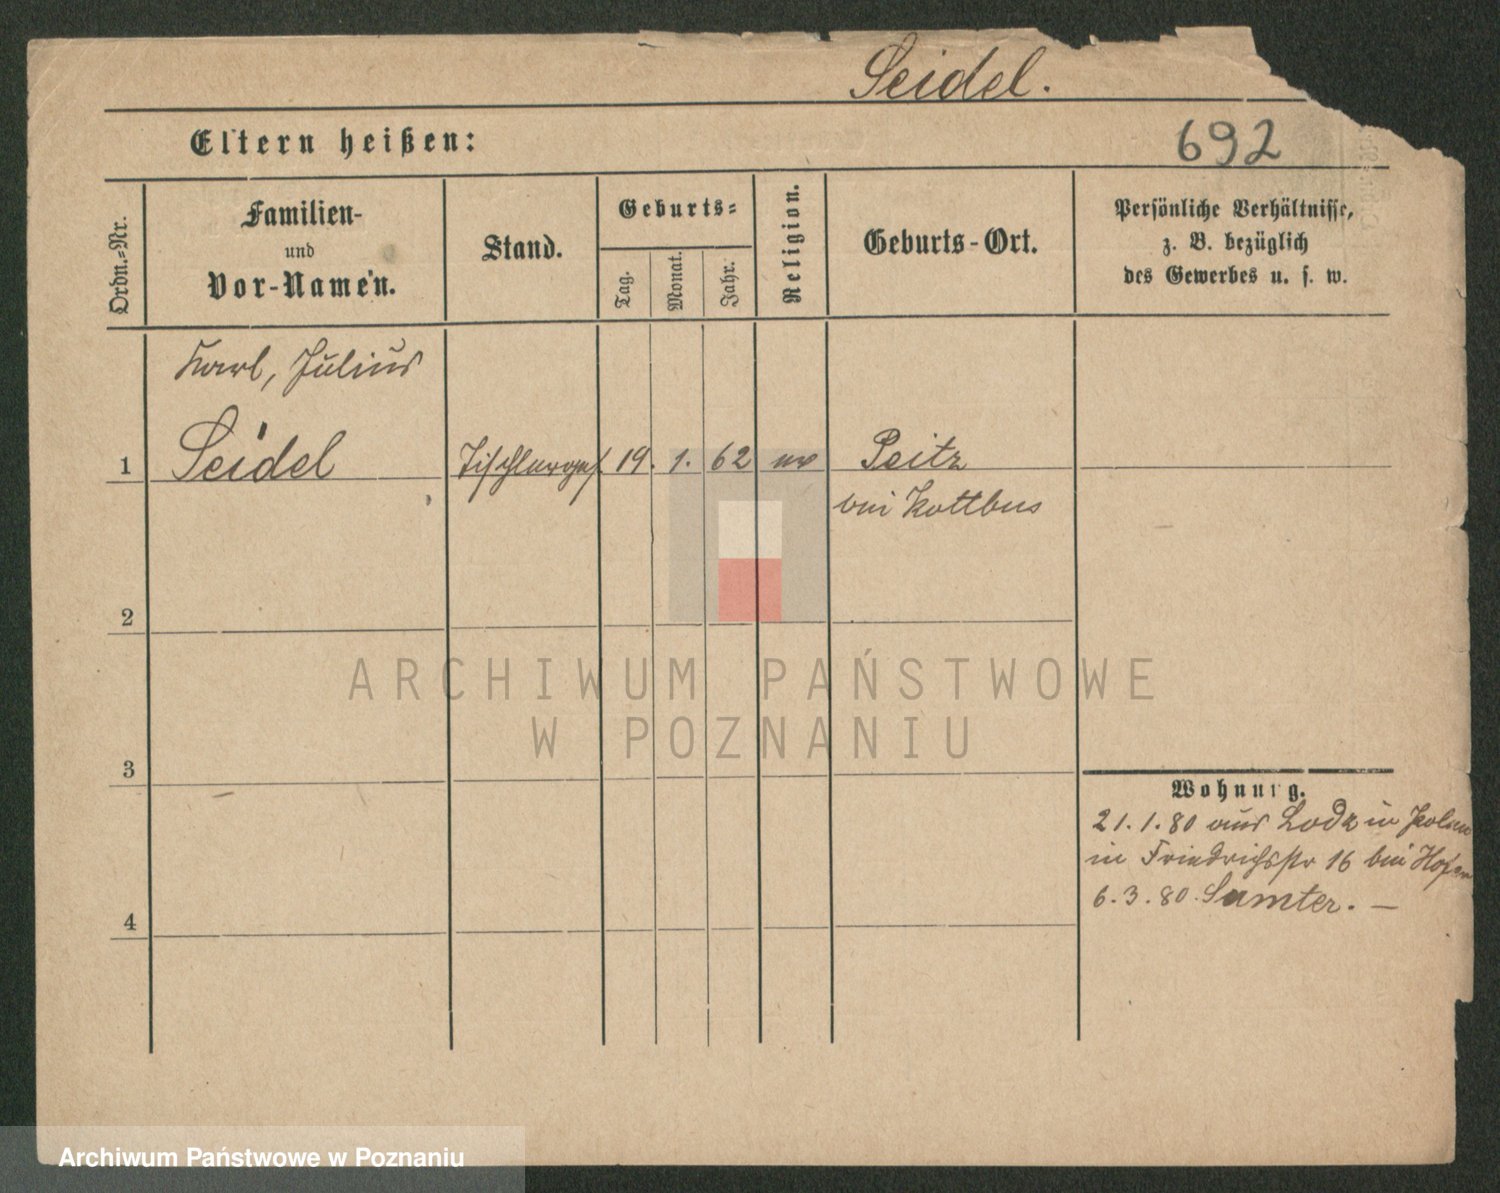 Seidel.
Eltern heißen:
692
Ordn.-Nr.
Familien-
und
Vor-Namen.
Stand.
Geburts-
Tag.
Monat.
Jahr.
Religion.
Geburts-Ort.
Persönliche Verhältnisse,
z. B. bezüglich
des Gewerbes u. s. w.
Karl, Julius
1 Seidel Tischlerges. 19. 1. 62 ev Peitz
bei Kottbus
2
ARCHIWUM PAŃSTWOWE
W POZNANIU
3
Wohnung.
21.1.80 aus Lodz in Polen
in Friedrichsstr 16 bei
6.3.80. Samter. —
4
Archiwum Państwowe w Poznaniu